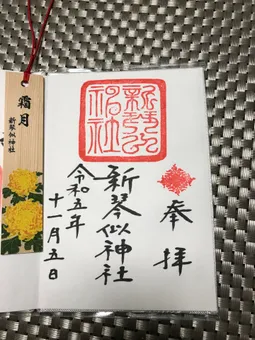 奉拝
新琴似神社
令和五年
十一月五日
霜月
新琴似神社